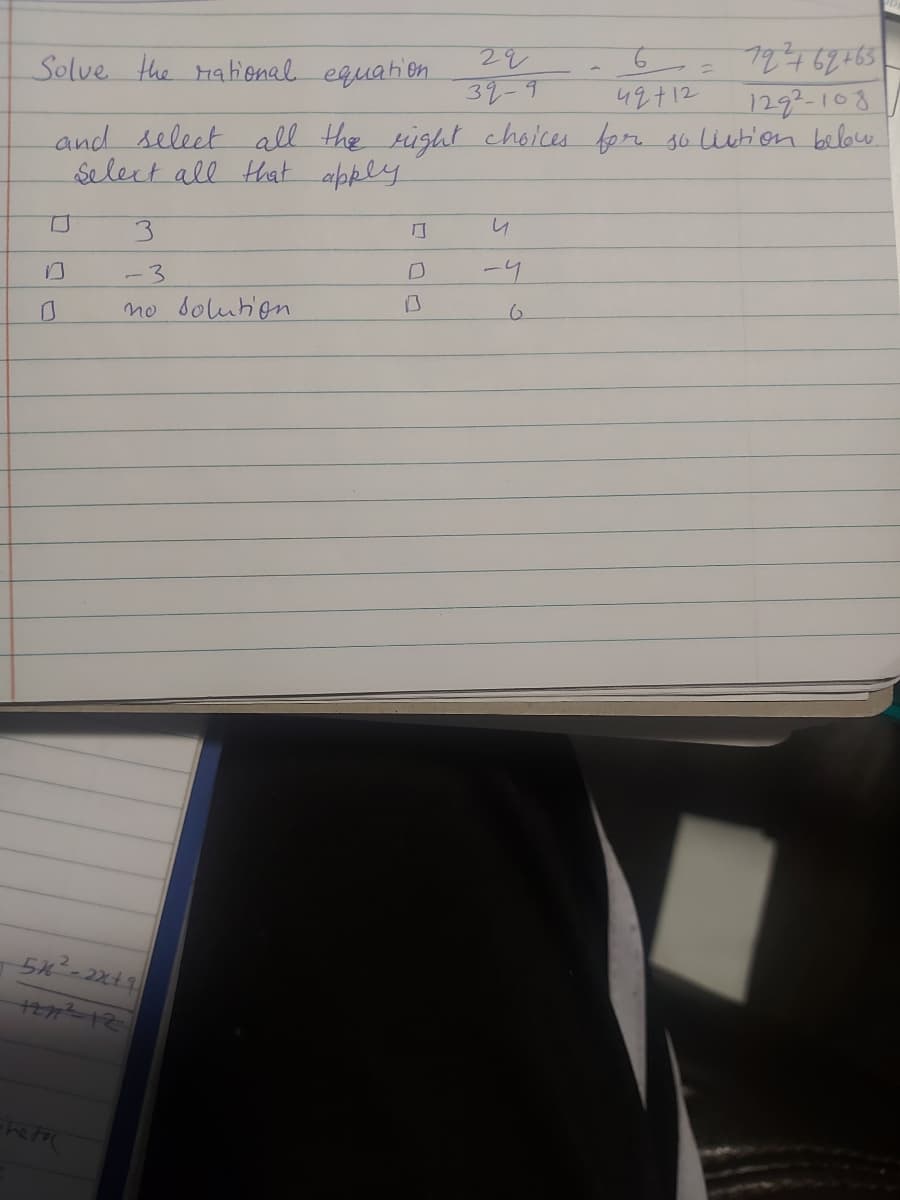 Solve the rational equation 2q/3q-9 - 6/4q+12 = 7q²+6q+63/12q²-108
and select all the right choices for solution below.
Select all that apply
□ 3 □ 4
□ -3 □ -4
□ no solution □ 6
5x²-2x+9
12x²-12